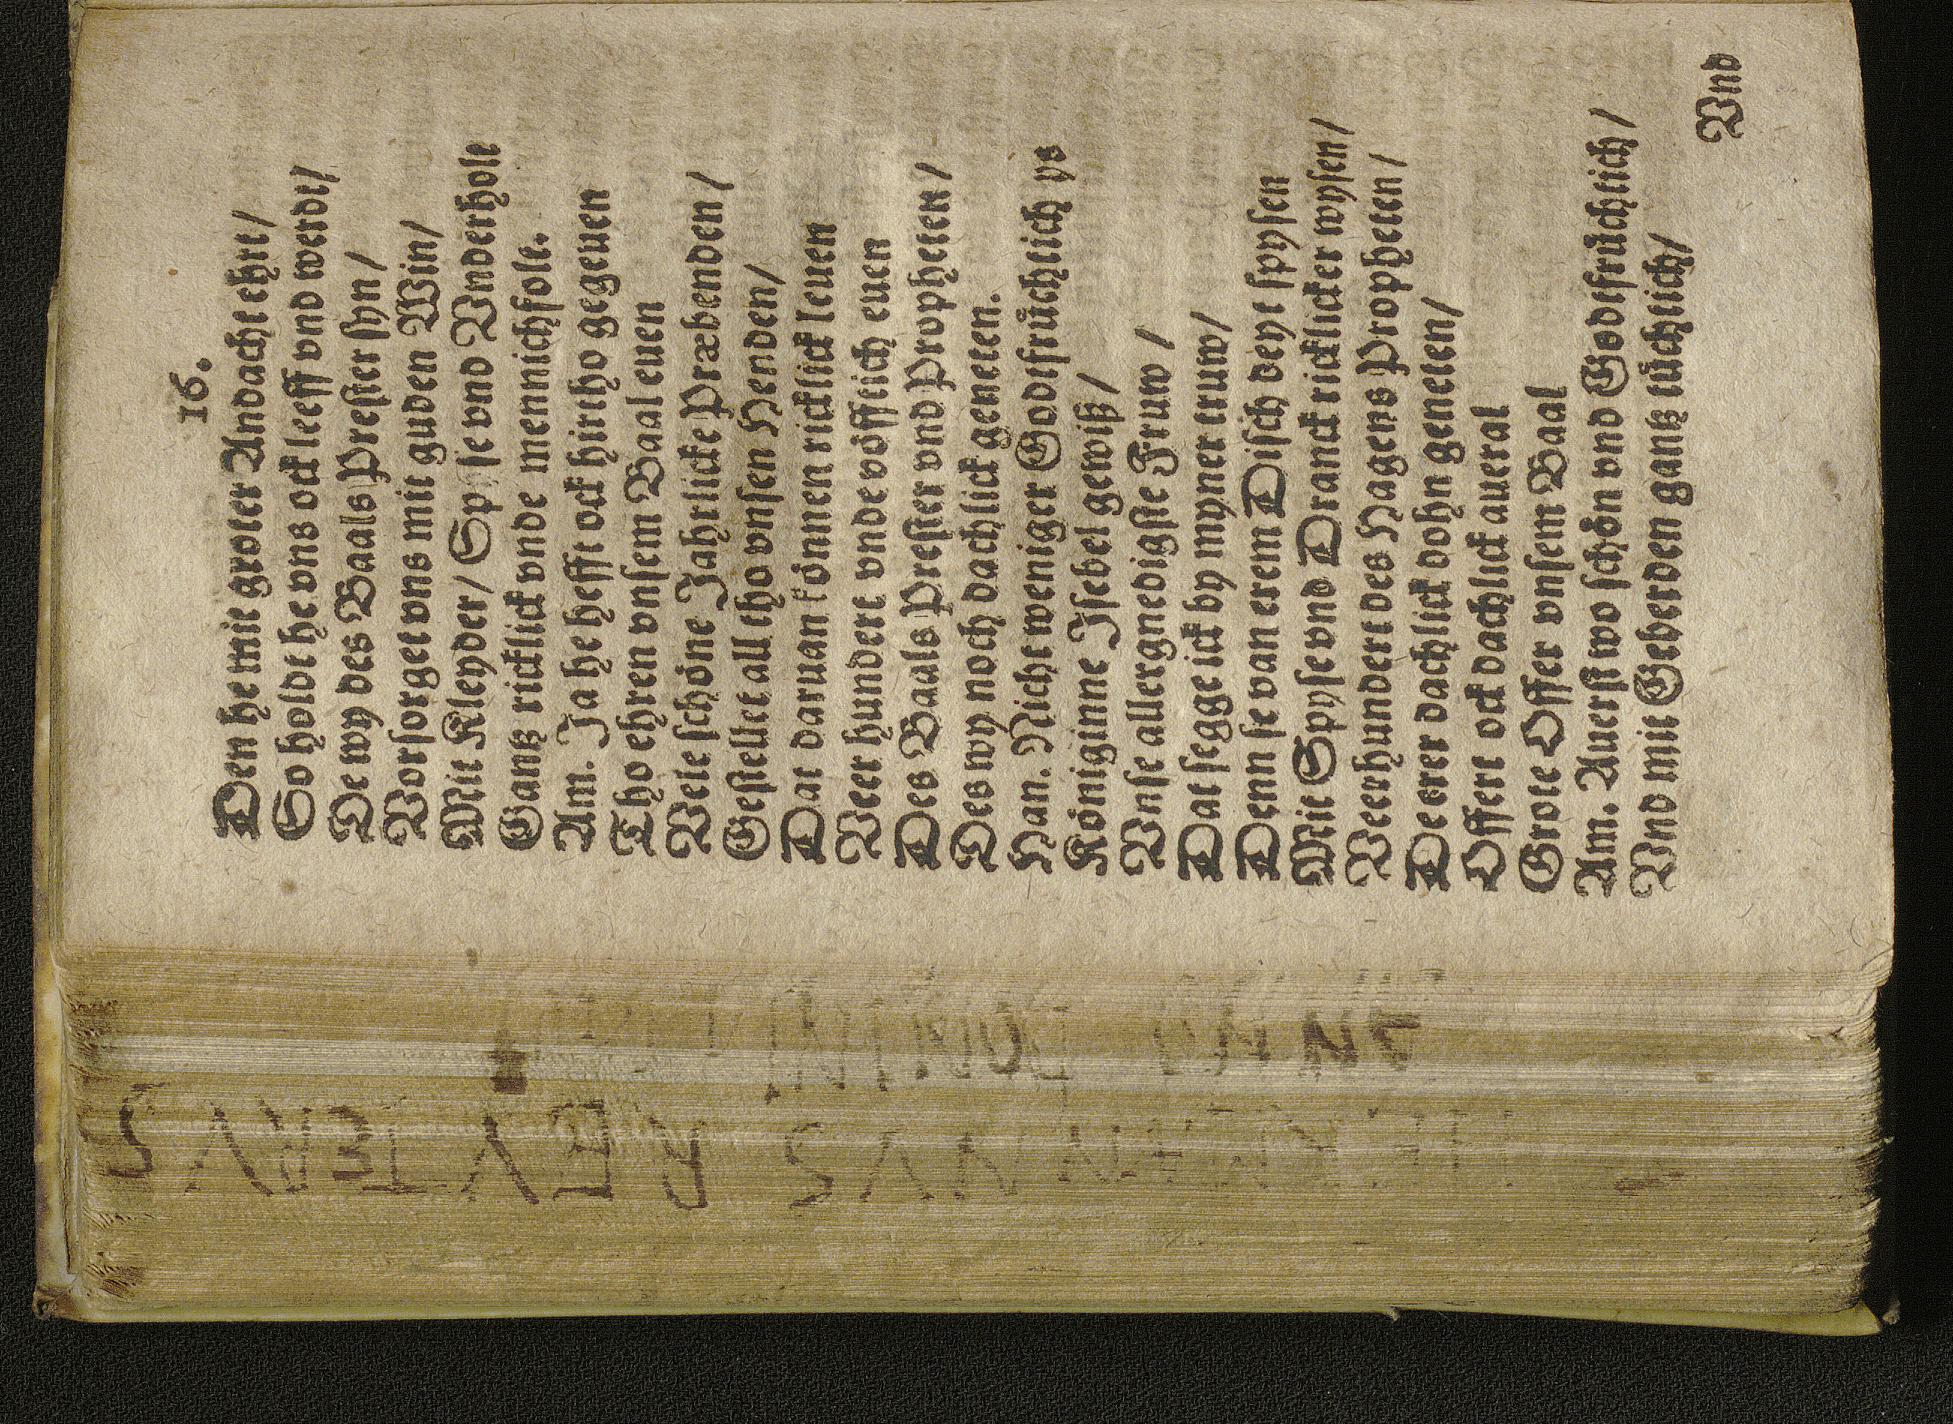 16.
Den he mit groter Andacht ehrt/
So holdt he vns ock leeff vnd werdt/
De wy des Baals Prester syn/
Vorsorget vns mit guden Win/
Mit Kleyder/ Spyse vnd Vnderholt
Gantz ricklick vnde mennichfolt.
Am. Ja he hefft ock hirtho geguen
Tho ehren vnsem Baal euen
Vele schöne Jahrlicke Præbenden/
Gestellet all tho vnsen Henden/
Dat daruan können ricklick leuen
Veer hundert vnde vöfftich euen
Des Baals Prester vnd Propheten/
Des wy noch dachlick geneten.
Han. Nicht weniger Godtfrüchtich ys
Königinne Jsebel gewiß/
Vnse allergnedigste Fruw/
Dat segge ick by myner truw/
Denn se van erem Disch deyt spysen
Mit Spyse vnd Dranck ricklicker wysen/
Veerhundert des Hagens Propheten/
De erer dachlick dohn geneten/
Offert ock dachlick aueral
Grote Offer vnsem Baal
Am. Auerst wo schön vnd Godtfrüchtich/
Vnd mit Geberden gantz tüchtich/
Vnd
ANNO DOMINI
HERMANNVS